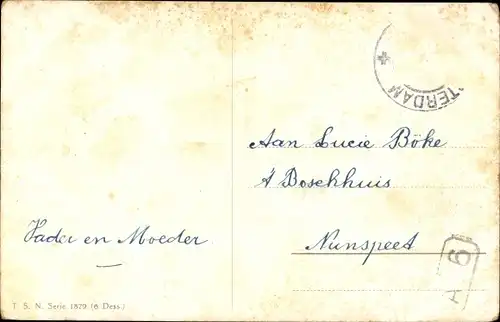 TERDAM
Aan Lucie Böke
't Boschhuis
Nunspeet
Vader en Moeder
T. S. N. Serie 1879 (6 Dess.)
H 6